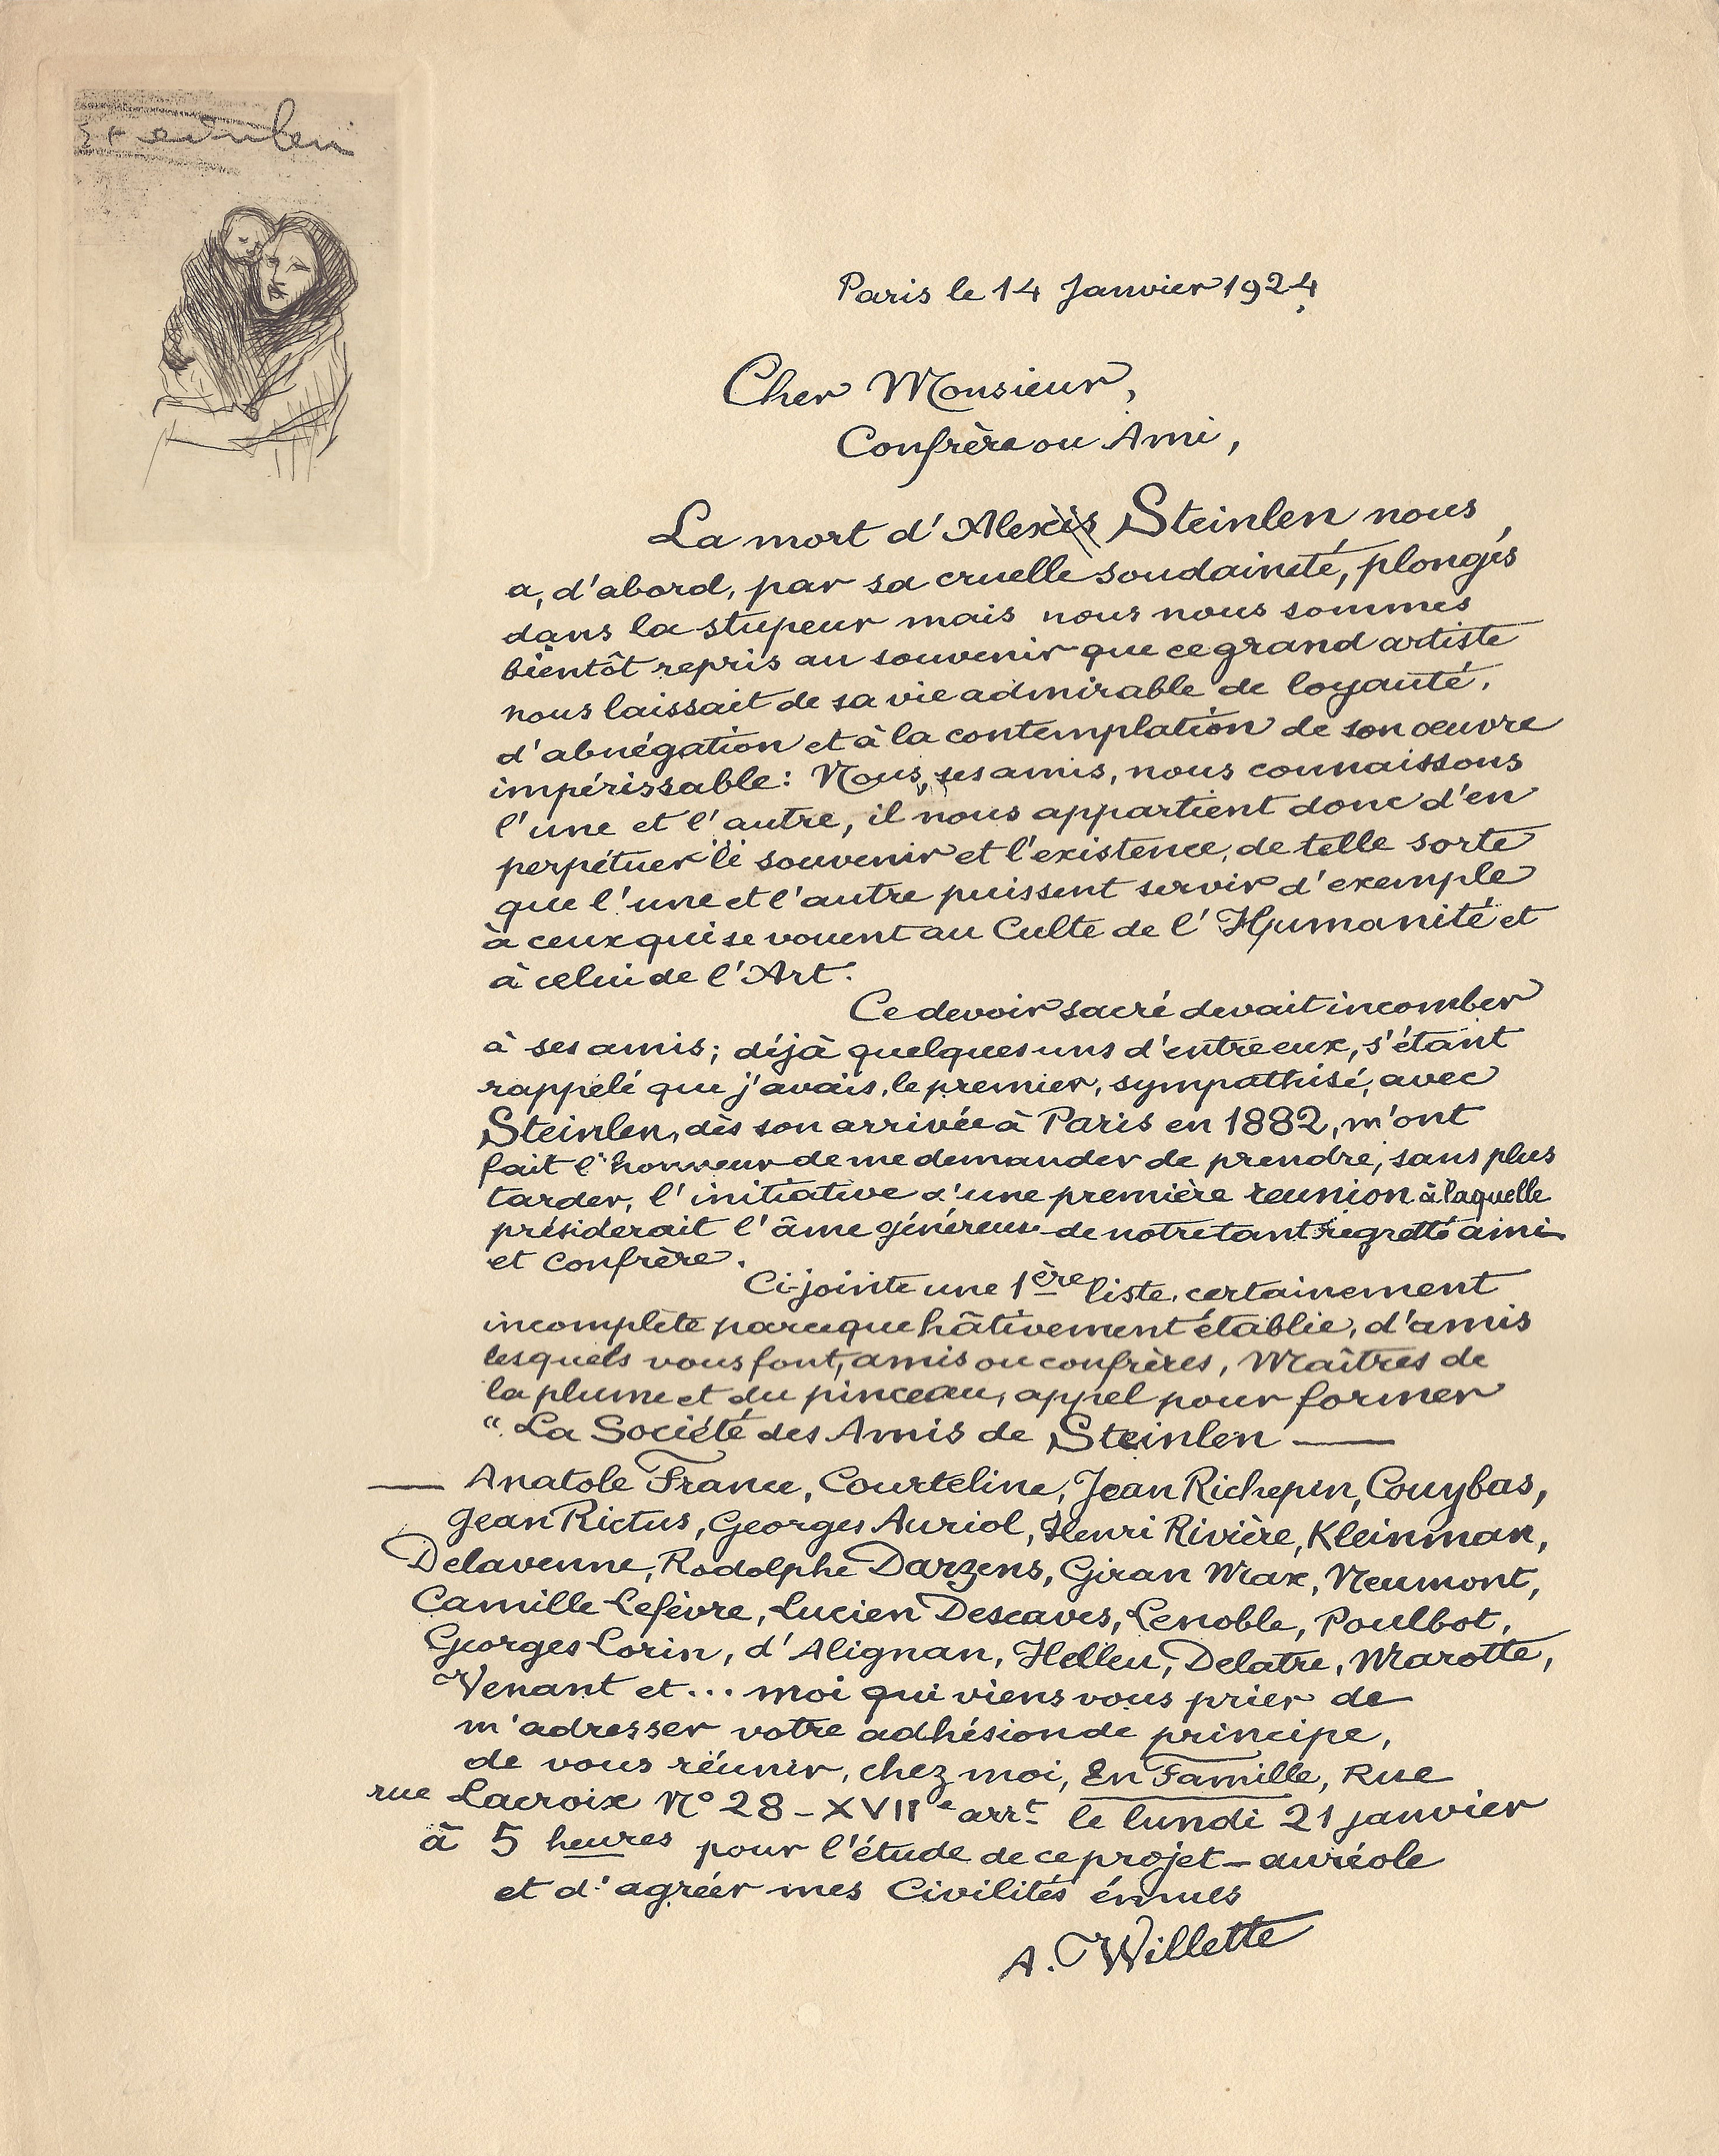 Steinlen
Paris le 14 Janvier 1924
Cher Monsieur,
Confrère ou Ami,
La mort d'Alexis Steinlen nous
a, d'abord, par sa cruelle soudaineté, plongés
dans la stupeur mais nous nous sommes
bientôt repris au souvenir que ce grand artiste
nous laissait de sa vie admirable de loyauté,
d'abnégation et à la contemplation de son oeuvre
impérissable: Nous, ses amis, nous connaissons
l'une et l'autre, il nous appartient donc d'en
perpétuer le souvenir et l'existence, de telle sorte
que l'une et l'autre puissent servir d'exemple
à ceux qui se vouent au Culte de l'Humanité et
à celui de l'Art.
Ce devoir sacré devait incomber
à ses amis; déjà quelques uns d'entre eux, s'étant
rappelé que j'avais, le premier, sympathisé, avec
Steinlen, dès son arrivée à Paris en 1882, m'ont
fait l'honneur de me demander de prendre, sans plus
tarder, l'initiative d'une première réunion à laquelle
présiderait l'âme généreuse de notre tant regretté ami
et confrère.
Ci-jointe une 1ère liste, certainement
incomplète parce que hâtivement établie, d'amis
lesquels vous font, amis ou confrères, Maîtres de
la plume et du pinceau, appel pour former
"La Société des Amis de Steinlen —
— Anatole France, Courteline, Jean Richepin, Couybas,
Jean Rictus, Georges Auriol, Henri Rivière, Kleinman,
Delavenne, Rodolphe Darzens, Giran Max, Neumont,
Camille Lefèvre, Lucien Descaves, Lenoble, Poulbot,
Georges Lorin, d'Alignan, Helleu, Delatre, Marotte,
Venant et... moi qui viens vous prier de
m'adresser votre adhésion de principe,
de vous réunir, chez moi, En Famille, Rue
rue Lacroix N° 28 - XVIIe arrt le lundi 21 janvier
à 5 heures pour l'étude de ce projet - auréole
et d'agréer mes Civilités émues
A. Willette